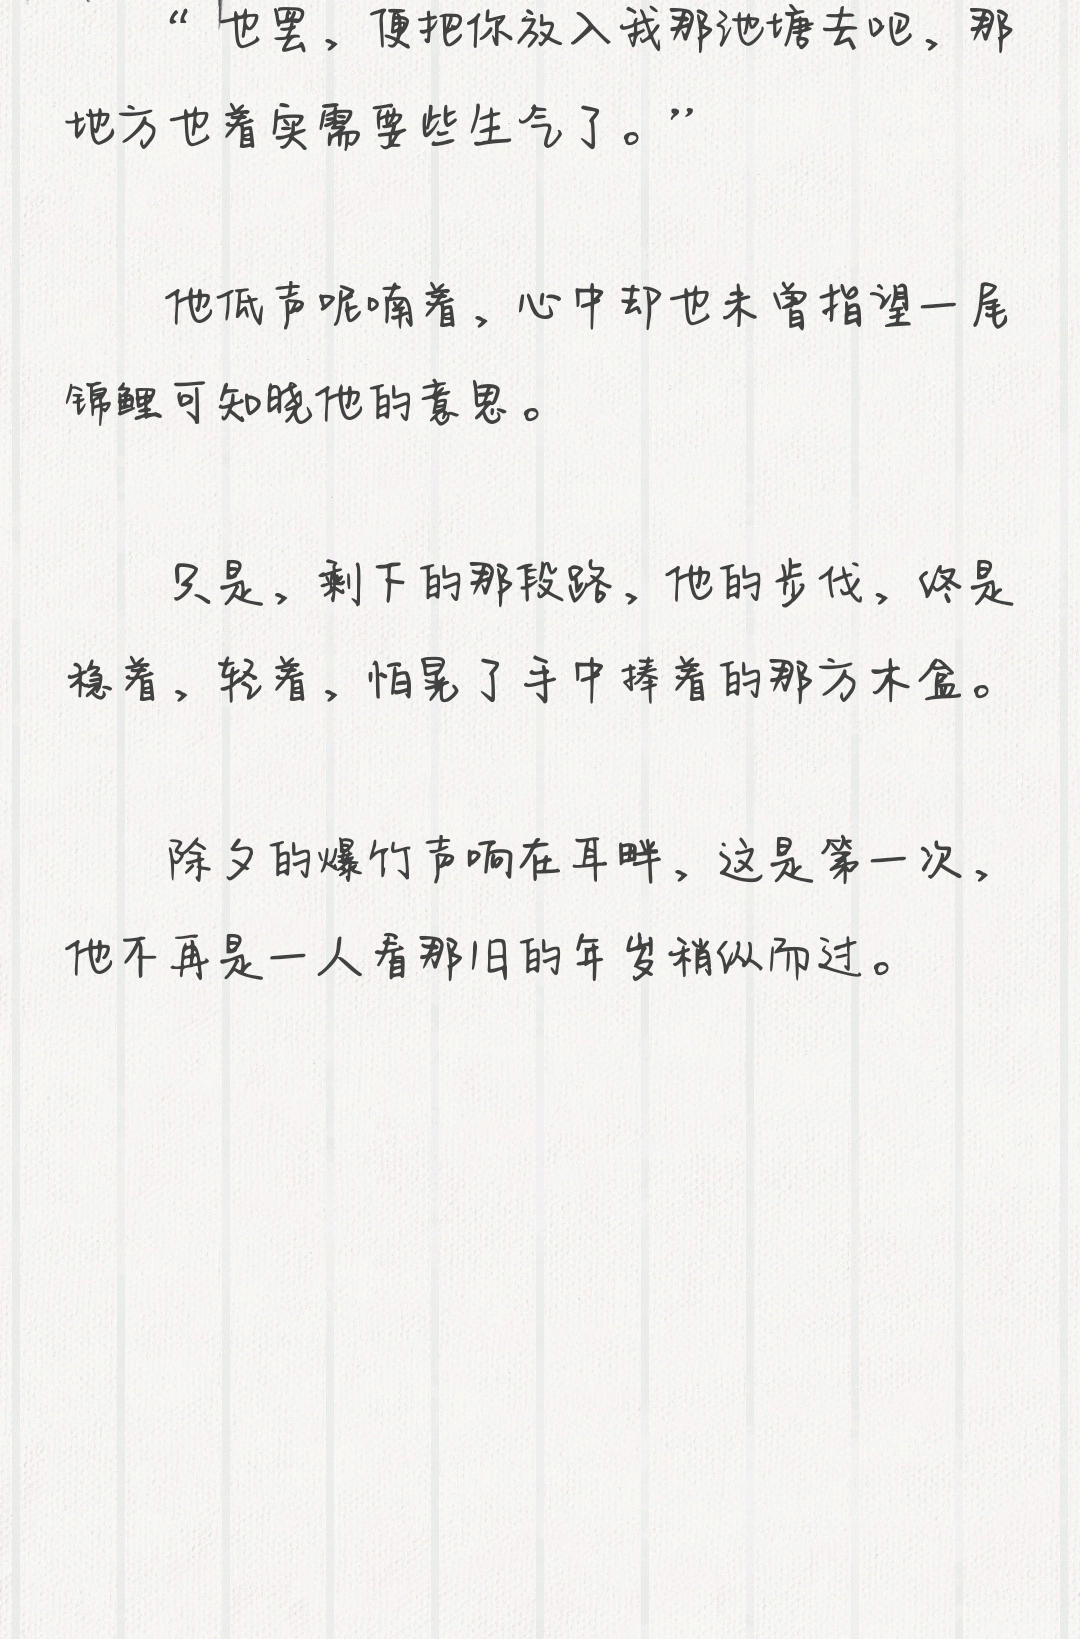 “也罢，便把你放入我那池塘去吧，那
地方也着实需要些生气了。”
他低声呢喃着，心中却也未曾指望一尾
锦鲤可知晓他的意思。
只是，剩下的那段路，他的步伐，终是
稳着，轻着，怕晃了手中捧着的那方木盒。
除夕的爆竹声响在耳畔，这是第一次，
他不再是一人看那旧的年岁稍纵而过。